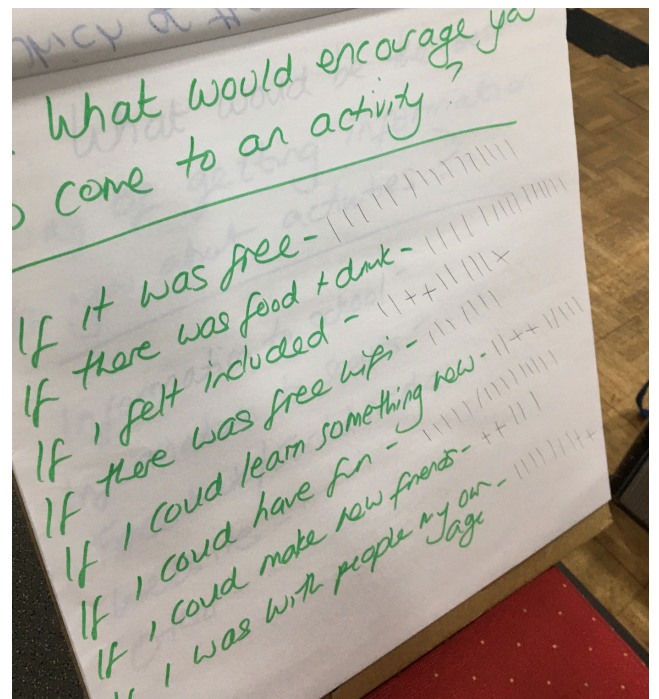 What would encourage yo
come to an activity?
If it was free -
If there was food + drink -
If I felt included -
If there was free wifi -
If I coud learn something new -
If I coud have fun -
If I coud make new friends -
If I was with people my own -
age